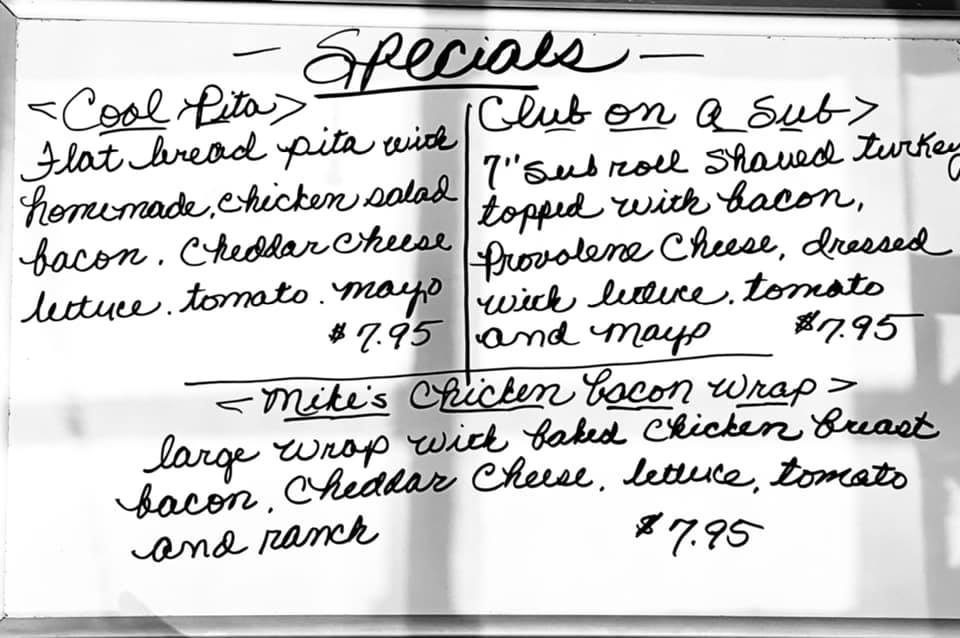 - Specials -
<Cool Pita>
Flat bread pita with
homemade, chicken salad
bacon. Cheddar Cheese
lettuce. tomato. mayo
$7.95
Club on a Sub>
7" sub roll Shaved turkey
topped with bacon,
Provolene Cheese, dressed
with lettuce. tomato
and mayo $7.95
<Mike's Chicken bacon wrap>
large wrap with baked chicken breast
bacon, Cheddar Cheese, lettuce, tomato
and ranch $7.95